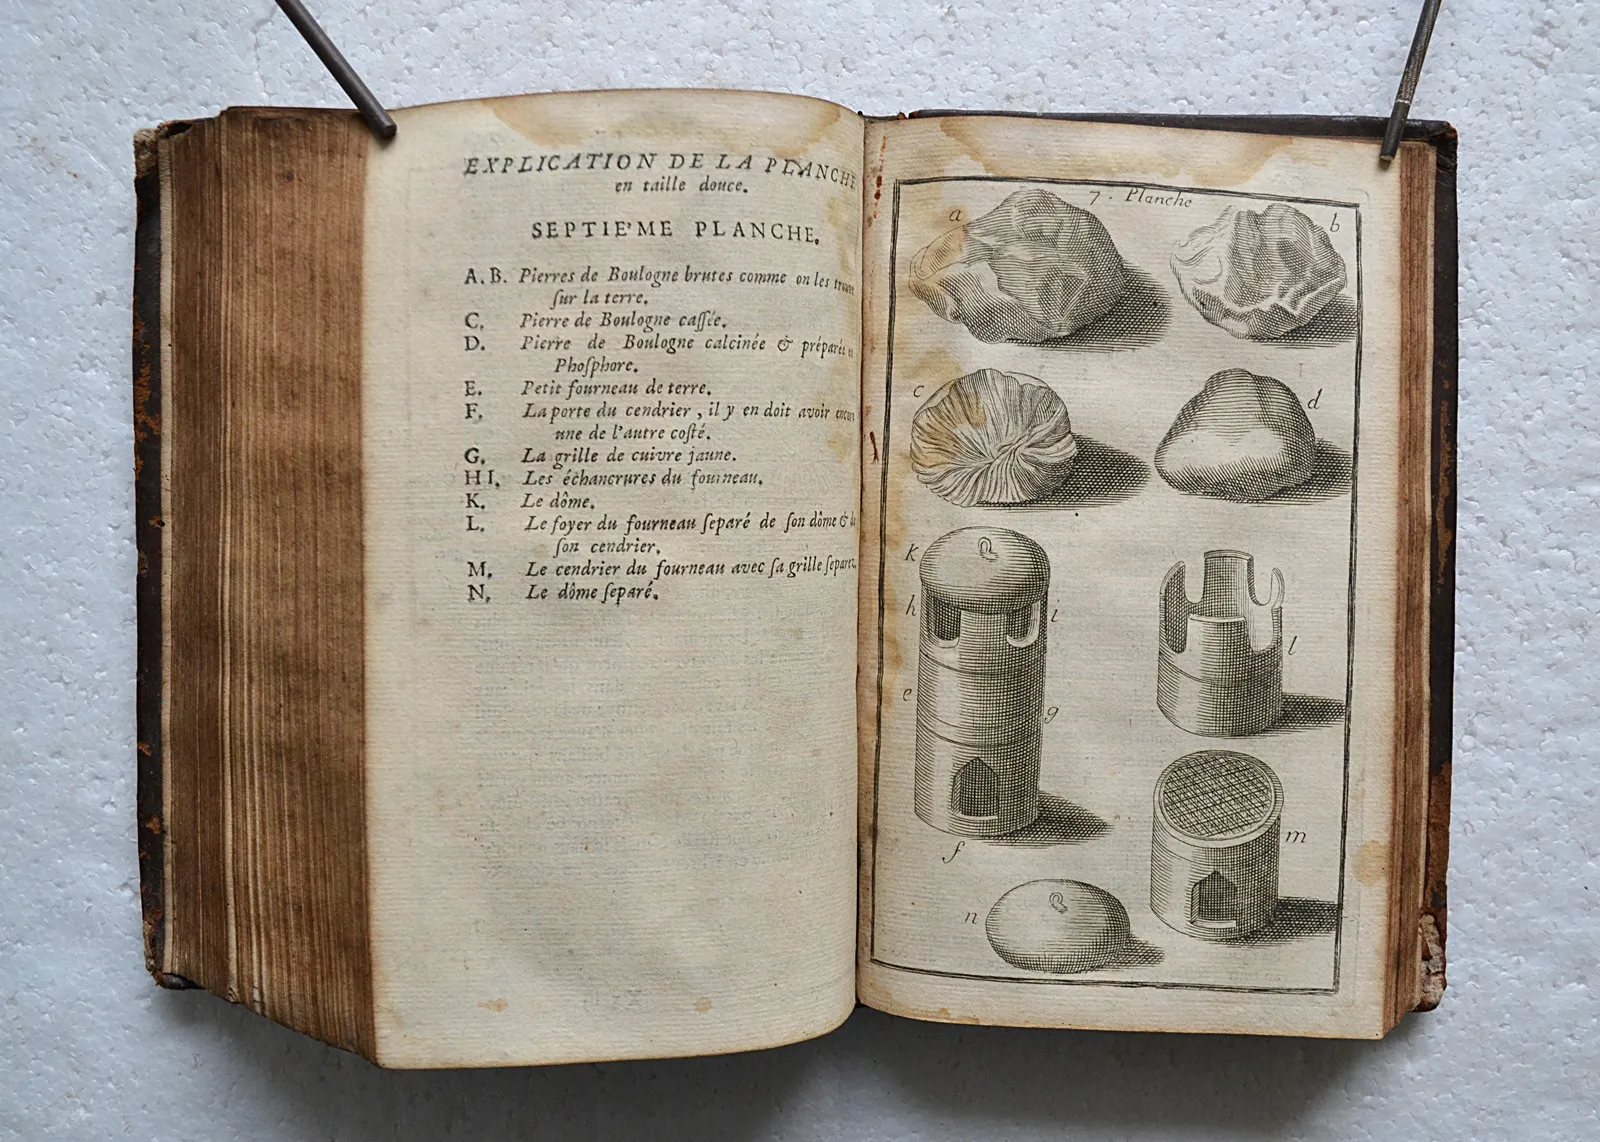 EXPLICATION DE LA PLANCHE
en taille douce.
SEPTIE'ME PLANCHE.
A. B. Pierres de Boulogne brutes comme on les
ſur la terre.
C. Pierre de Boulogne caſſée.
D. Pierre de Boulogne calcinée & préparée
Phoſphore.
E. Petit fourneau de terre.
F. La porte du cendrier, il y en doit avoir
une de l'autre coſté.
G. La grille de cuivre jaune.
H I. Les échancrures du fourneau.
K. Le dôme.
L. Le foyer du fourneau ſeparé de ſon dôme &
ſon cendrier.
M. Le cendrier du fourneau avec ſa grille
N. Le dôme ſeparé.
7. Planche
a
b
c
d
k
h
i
l
e
g
f
m
n